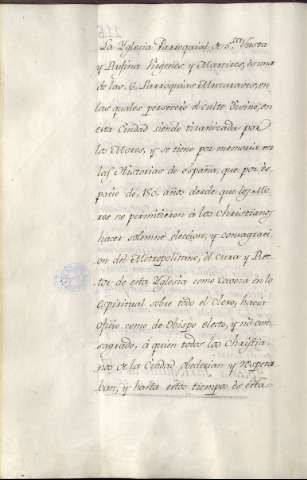 La Yglesia Parroquial de S.tas Justa
y Rufina Virgenes, y Martires, és una
de las 6. Parroquias Muzarabes, en
las quales perseveró el culto Divino, en
esta Ciudad siendo tiranizada por
los Moros, y se tiene por memoria en
las Historias de España, que por es-
pacio de 180. años desde que los Mo-
ros no permitieron á los Christianos
hacer solemne eleccion, y consagraci-
on del Metropolitano, el Cura y Rec-
tor de esta Yglesia como Cavera en lo
Espiritual sobre todo el Clero, hacia
ofizio como de Obispo electo, y no con-
sagrado, á quien todos los Christia-
nos de la Ciudad obedecian y respeta-
ban, y hasta estos tiempos de esta